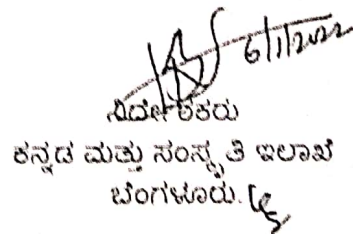 6/1/2022
ನಿರ್ದೇಶಕರು
ಕನ್ನಡ ಮತ್ತು ಸಂಸ್ಕೃತಿ ಇಲಾಖೆ
ಬೆಂಗಳೂರು.